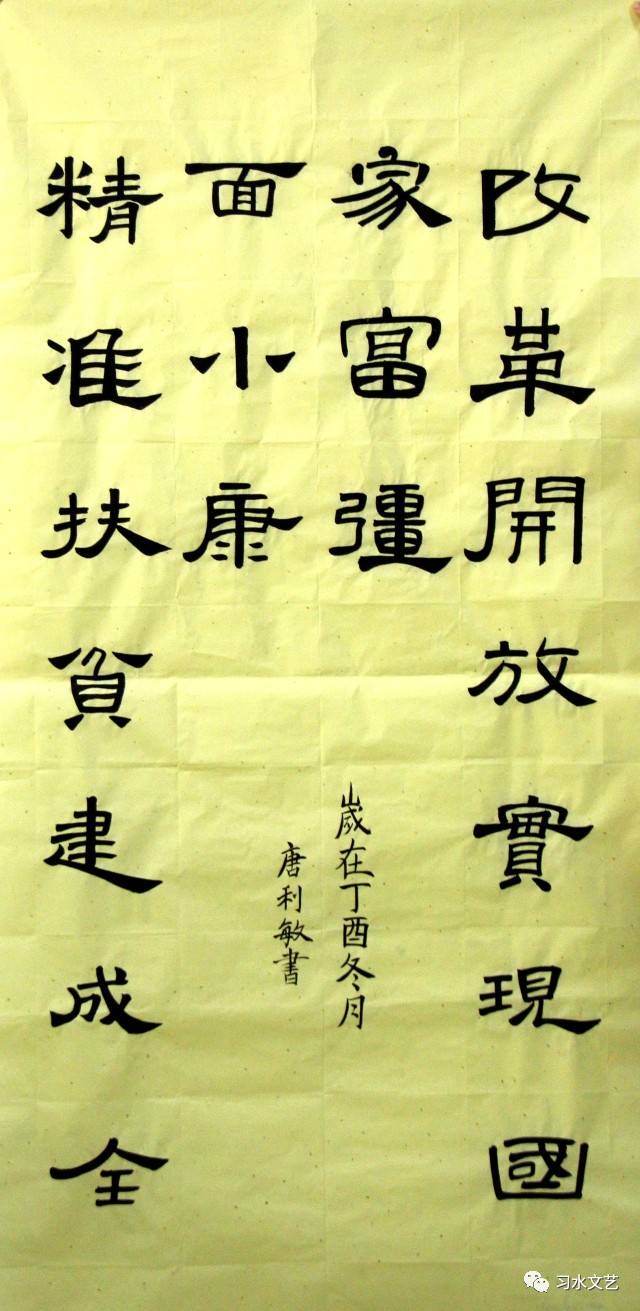 改革開放實現國
家富彊
歲在丁酉冬月
精准扶貧建成全
面小康
唐利敏書
习水文艺